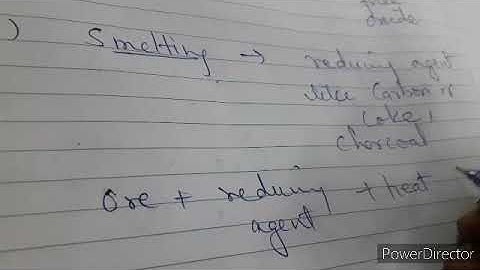 pure
oxide
) Smelting → reducing agent
like Carbon or
Coke,
Charcoal
Ore + reducing + Heat
agent
PowerDirector